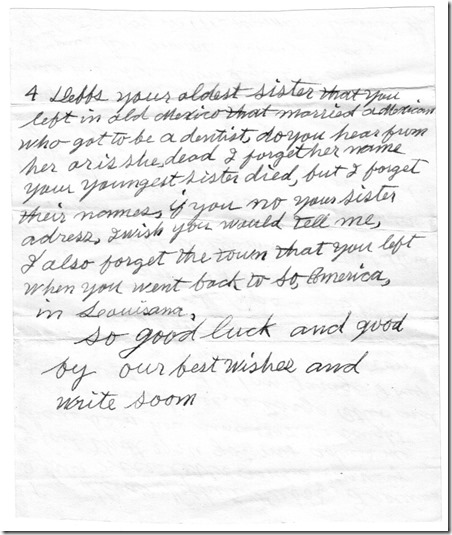 4 Debbs your oldest sister that you
left in old Mexico that married a Mexican
who got to be a dentist, do you hear from
her or is she dead I forget her name
your youngest sister died, but I forget
their names, if you no your sister
adress, I wish you would tell me,
I also forget the town that you left
when you went back to So, America,
in Louisana,
so good luck and good
by our best wishee and
write soom